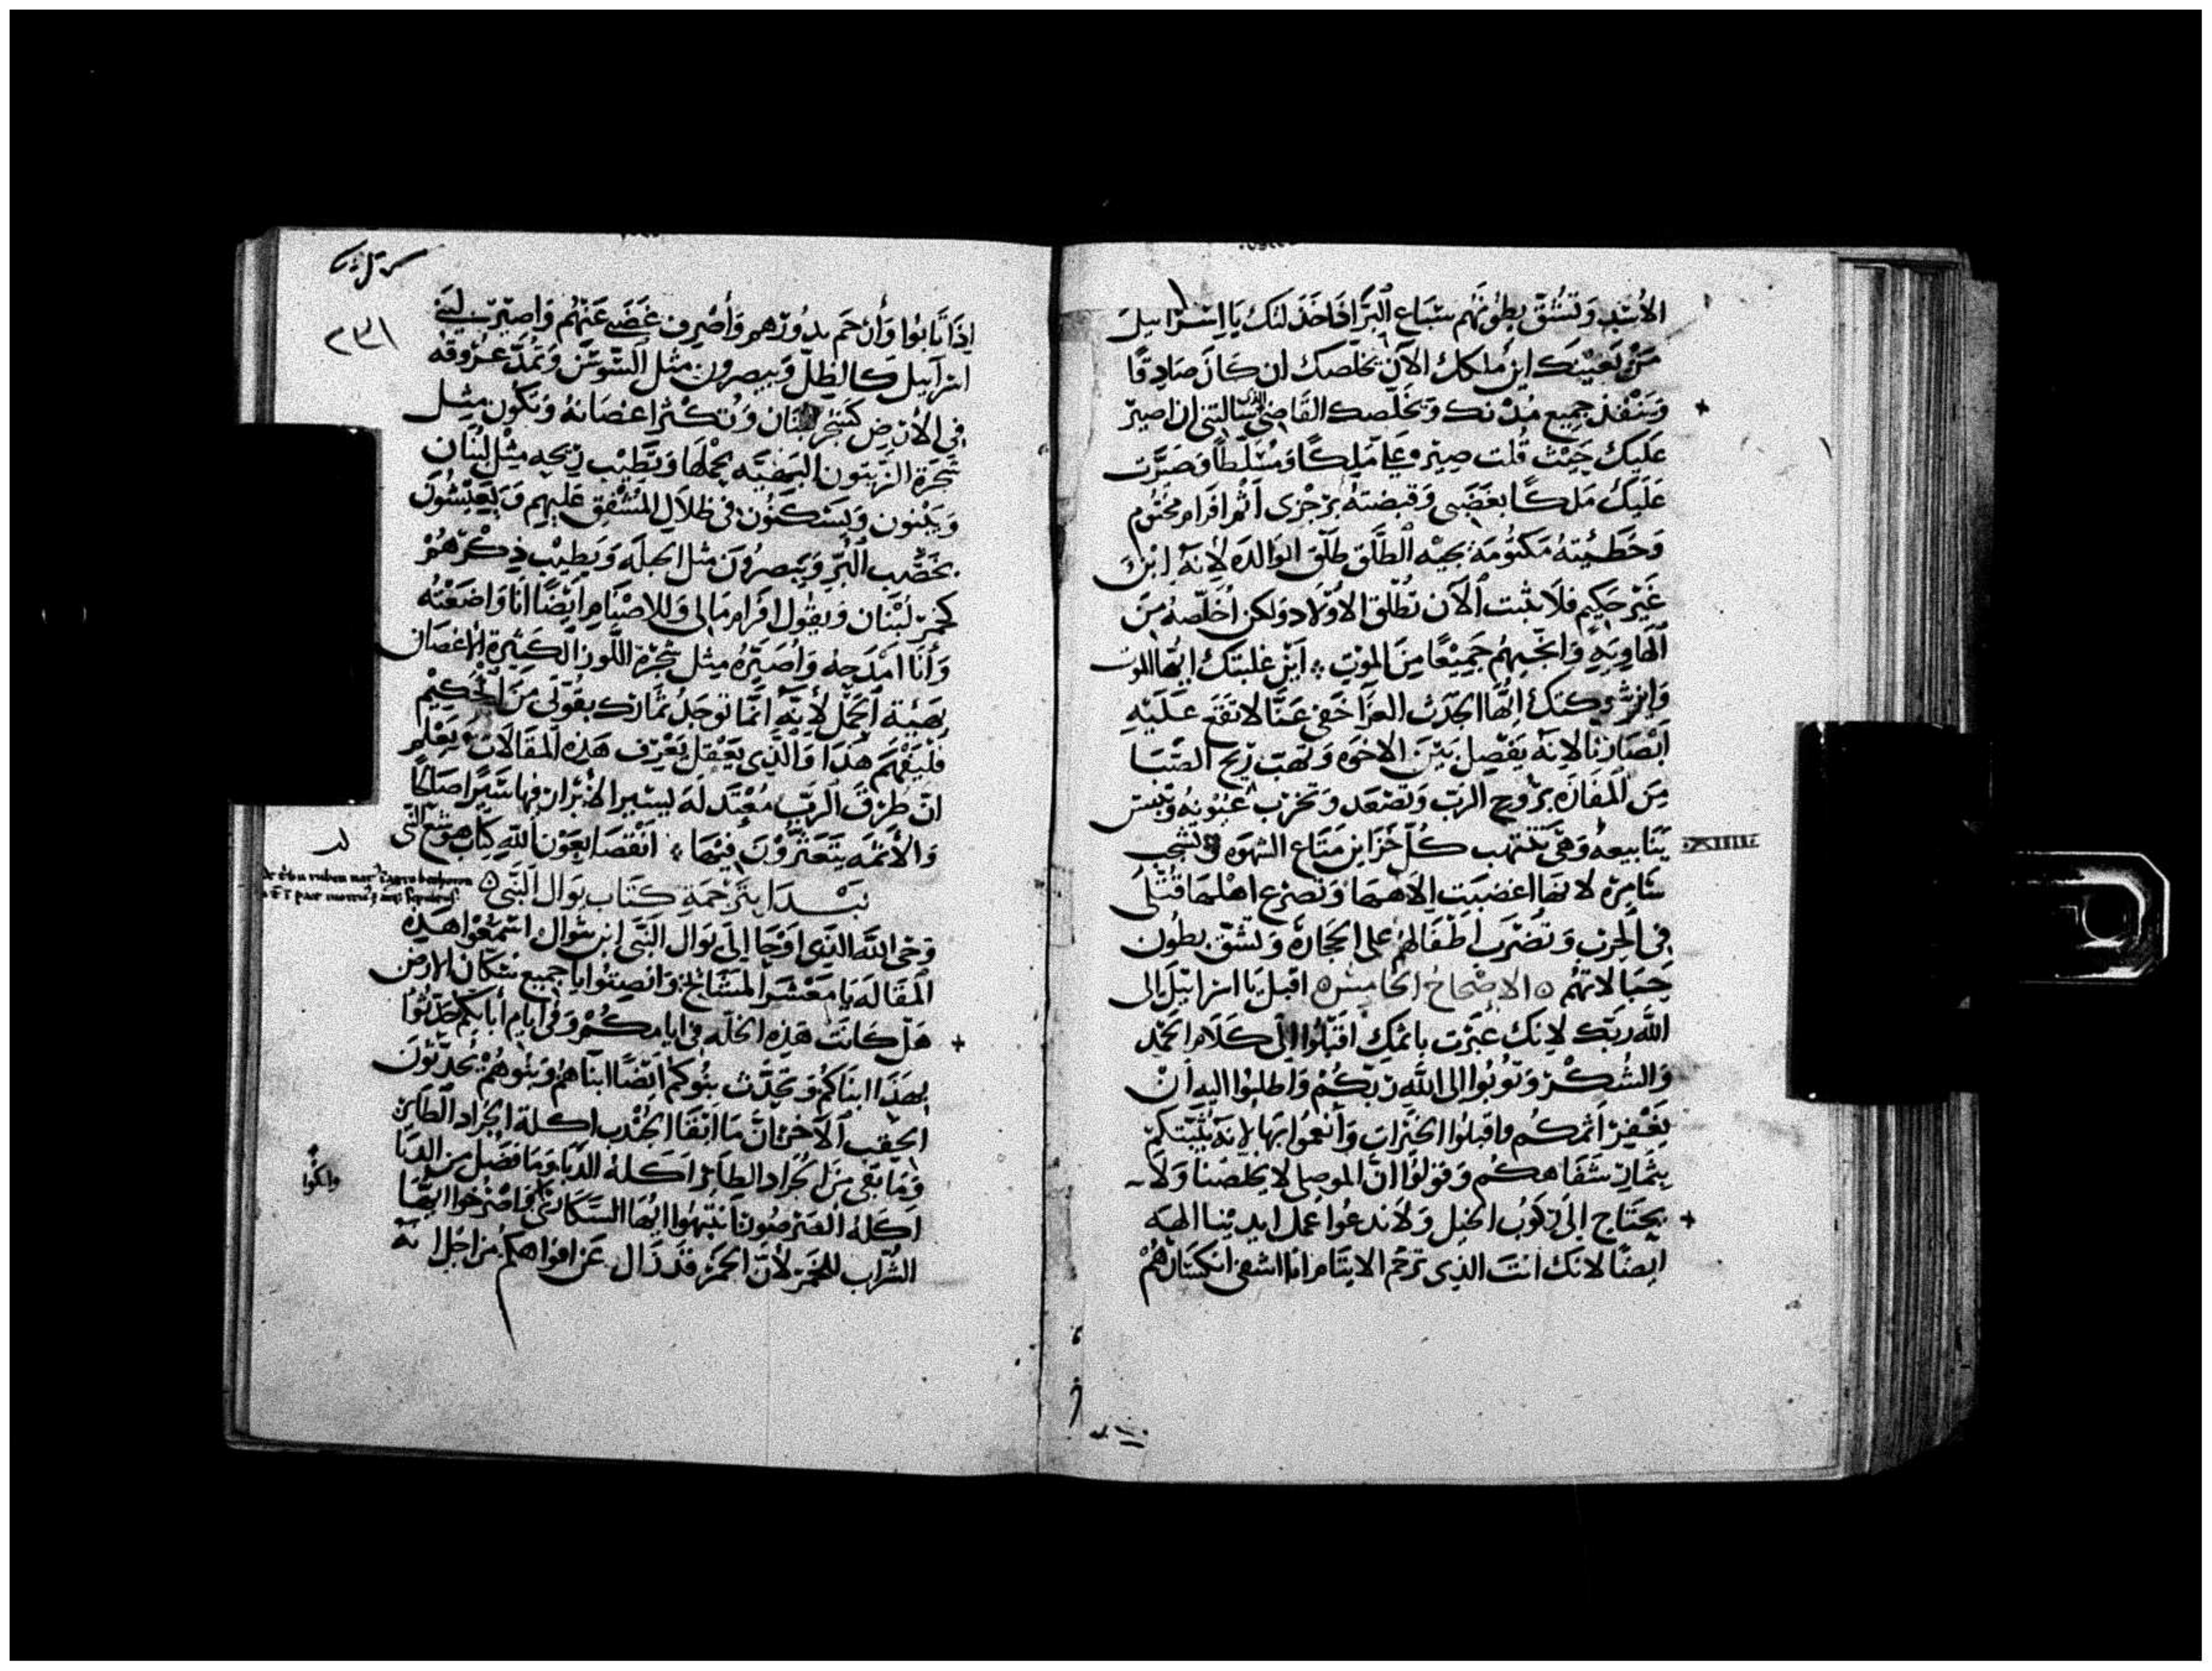 الأسد وتشق بطونهم سباع البر أفأخذ لنك يا إسرائيل
من يعينك اين ملكك الآن يخلصك ان كان صادقًا
وينقذ جميع مدنك ويخلصك القاضي الذي سالتني ان اصير
عليك حيث قلت صير علي ملكًا ومسلطًا وصيرت
عليك ملكًا بغضبي وقبضته برجزي اثم افرام مختوم
وخطيئته مكتومة يجيه الطلق طلق الوالده لانه ابن
غير حكيم فلا يثبت الآن تطلق الاولاد ولكن أخلصه من
الهاوية وانجيهم جميعًا من الموت اين غلبتك ايها الموت
واين شوكتك ايها الجدث العزا خفي عنا لا تقع عليه
ابصارنا لانه يفصل بين الاخوه وتهب ريح الصبا
من المفازه بروح الرب وتصعد وتخرب عيونه وتيبس
ينابيعه وهي تنتهب كل خزاين متاع الشهوه وتشجب
XIIIII
سامرة لانها اغضبت الاهها وتصرع اهلها قتلى
في الحرب وتضرب اطفالهم على الحجاره وتشق بطون
حبالاتهم الاصحاح الخامس اقبل يا اسرائيل الى
الله ربك لانك عثرت باثمك اقبلوا الى كلام الحمد
والشكر وتوبوا الى الله ربكم واطلبوا اليه ان
يغفر اثمكم واقبلوا الخيرات وأنعموا بها لانه يثيبكم
بثمار شفاهكم وقولوا ان الموصلي لا يخلصنا ولا
يحتاج الى ركوب الخيل ولا ندعوا عمل ايدينا الهه
ايضًا لانك انت الذي ترحم الايتام انا اشفي انكسارهم
٢٣١
اذا تابوا وأرحم بدورهم وأصرف غضبي عنهم واصير لبني
اسرائيل كالظل ويصرون مثل السوسن وتمد عروقه
في الأرض كشجر لبنان وتكثر اغصانه وتكون مثل
شجرة الزيتون البهية بحملها وتطيب ريحه مثل لبنان
ويبنون ويسكنون في ظلال المشفق عليهم ويعيشون
بخصب البر ويصرون مثل الحبلة ويطيب ذكرهم
كخمر لبنان ويقول افرام مالي وللاصنام ايضًا انا واضعته
وأنا امدحه وأصيره مثل شجرة اللوز الكثيرة الاغصان
بهيئة الحمل لأنه انما توجد ثمارك بقوتي من الحكيم
فليفهم هذا والذي يعقل يعرف هذه المقالات ويعلم
ان طرق الرب معتدله ليسير الابرار فيها سيرًا صالحًا
والأثمه يتعثرون فيها انقضا بعون الله كتاب هوشع النبي
نبدا بترجمة كتاب يوال النبي
وحي الله الذي اوحا إلى يوال النبي ابن شوال استمعوا هذه
المقاله يا معشر المشايخ وانصتوا يا جميع سكان الارض
هل كانت هذه الخله في ايامكم وفي ايام ابايكم حدثوا
بهذا ابناكم وتحدث بنوكم ايضًا ابناهم وبنوهم يحدثون
الحقب الآخر فان ما ابقا الجندب اكلة الجراد الطاير
وما بقي من الجراد الطاير اكله الدبا وما فضل من الدبا
اكله الصرصور انتبهوا ايها السكارى واصرخوا ايضًا
وابكوا
الشراب للخمر لأن الخمر قد زال عن افواهكم من اجل انه